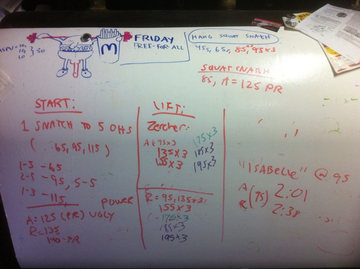 FRIDAY
FREE-FOR-ALL
HANG SQUAT SNATCH
45s, 65s, 85, 95x3
SQUAT SNATCH
85, A = 125 PR
START:
1 SNATCH TO 5 OHS
( 65, 95, 115)
1-3 - 65
2-5 - 95, 5-5
1-3 - 115
POWER
A = 125 (PR) UGLY
R = 135
140 PR
LIFT:
Zercher:
A = 95x3
135x3
175x3
185x3
195x3
R = 95, 135x3
155x3
185x3
195x3
"ISABELLE" @ 95
A
R
(95)
2:01
2:38